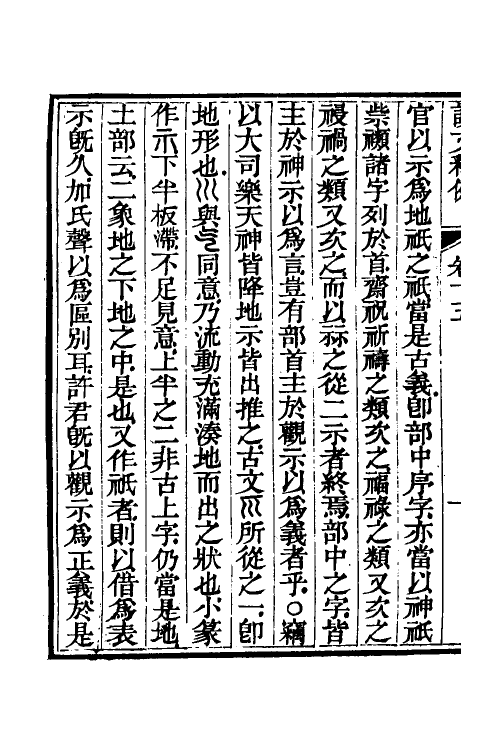 說文釋例 卷十三 一
官以示爲地祇之祇當是古義卽部中序字亦當以神祇
祡禷諸字列於首齋祝祈禱之類次之福祿之類又次之
祲禍之類又次之而以祘之從二示者終焉部中之字皆
主於神示以爲言豈有部首主於觀示以爲義者乎○竊
以大司樂天神皆降地示皆出推之古文巛所從之一卽
地形也巛與同意乃流動充滿湊地而出之狀也小篆
作示下半板滯不足見意上半之二非古上字仍當是地
土部云二象地之下地之中是也又作祇者則以借爲表
示旣久加氏聲以爲區別耳許君旣以觀示爲正義於是